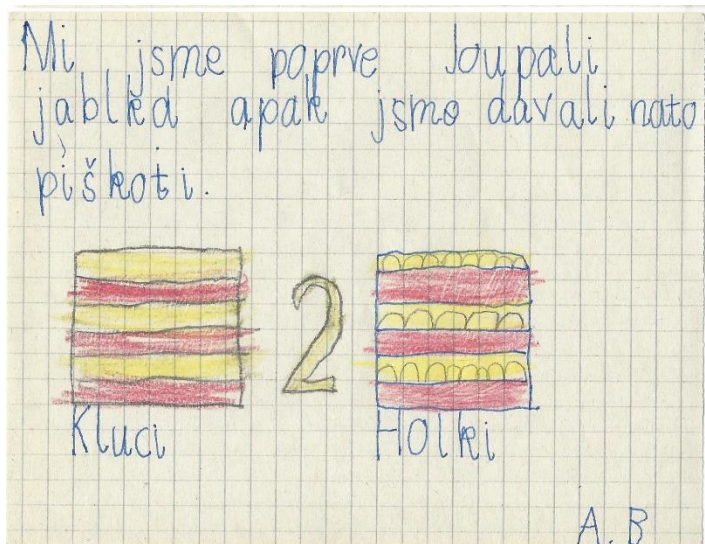 Mi jsme poprve loupali
jablka apak jsme davali nato
piškoti.
2
Kluci Holki
A. B